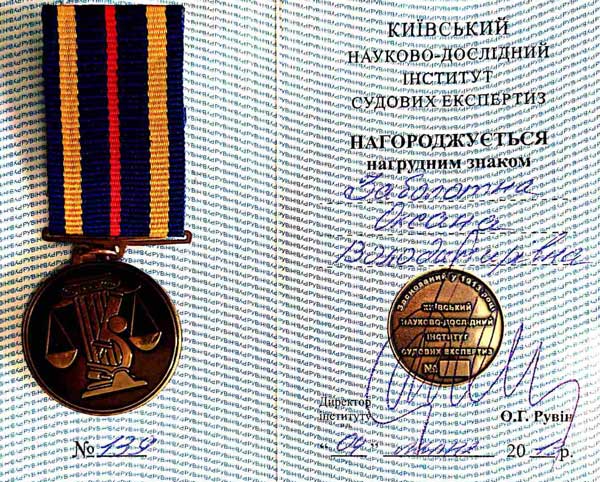 КИЇВСЬКИЙ
НАУКОВО-ДОСЛІДНИЙ
ІНСТИТУТ
СУДОВИХ ЕКСПЕРТИЗ
НАГОРОДЖУЄТЬСЯ
нагрудним знаком
Заболотна
Оксана
Володимирівна
Заснований у 1913 році
КИЇВСЬКИЙ
НАУКОВО-ДОСЛІДНИЙ
ІНСТИТУТ
СУДОВИХ ЕКСПЕРТИЗ
№
Директор
інституту
О.Г. Рувін
"04" липня 20 р.
№ 134